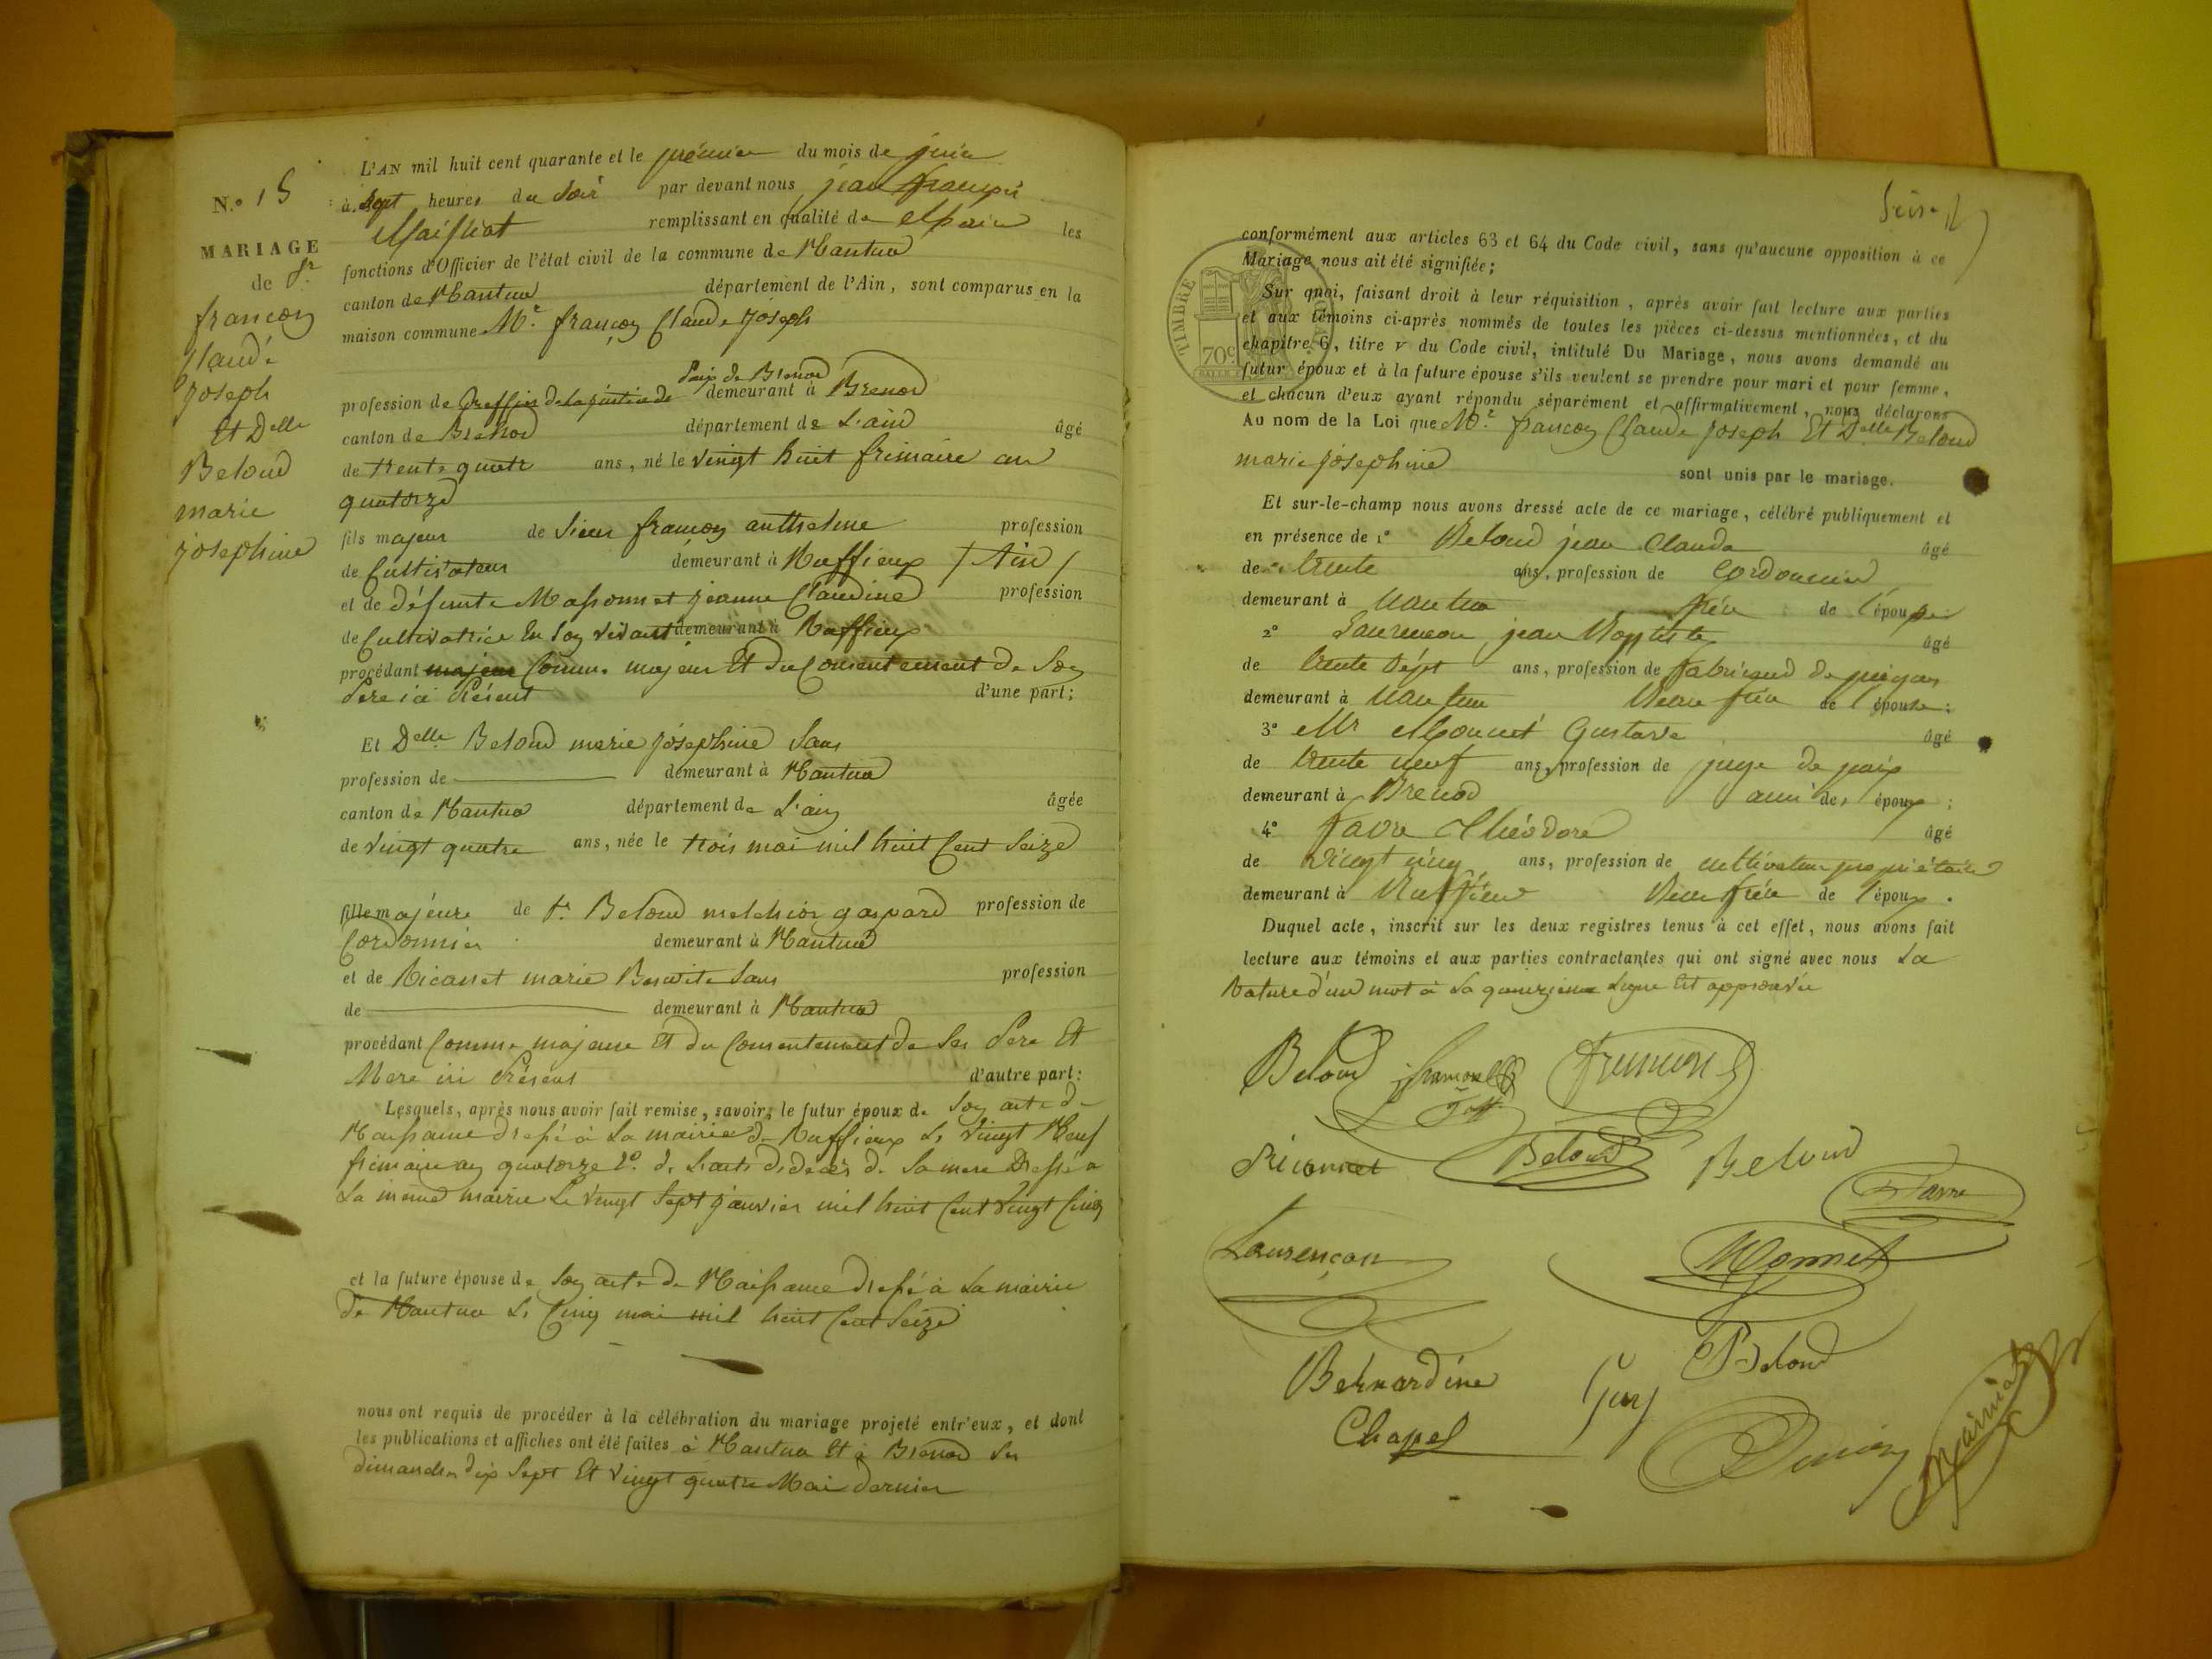 N.° 15
MARIAGE
de Sr
françon
Claude
joseph
Et Delle
Beloud
marie
josephine
L'AN mil huit cent quarante et le premier du mois de juin
à sept heures du Soir par devant nous jean françois
Maissiat remplissant en qualité de Maire les
fonctions d'Officier de l'état civil de la commune de Nantua
canton de Nantua département de l'Ain, sont comparus en la
maison commune Mr. françon Claude joseph
Paix de Brenod
profession de Greffier de la justice de demeurant à Brenod
canton de Brenod département de L'ain âgé
de trente quatre ans, né le vingt huit frimaire an
quatorze
fils majeur de Sieur françon anthelme profession
de Cultivateur demeurant à Ruffieux / Ain /
et de défunte Massonnet jeanne Claudine profession
de Cultivatrice En Son vivant demeurant à Ruffieux
procédant majeur Comme majeur Et du Consentement de Son
Pere ici Présent d'une part;
Et Delle Beloud marie josephine Sans
profession de demeurant à Nantua
canton de Nantua département de L'ain âgée
de vingt quatre ans, née le trois mai mil huit Cent Seize
fille majeure de Sr. Beloud melchior gaspard profession de
Cordonnier demeurant à Nantua
et de Ricannet marie Benoite Sans profession
de demeurant à Nantua
procédant Comme majeure Et du Consentement de Ses Pere Et
Mere ici Présens d'autre part:
Lesquels, après nous avoir fait remise, savoir, le futur époux de Son acte de
Naissance dressé à La mairie de Ruffieux Le vingt Neuf
frimaire an quatorze 2°. de L'acte de décès de Sa mere Dressé a
La même mairie Le vingt Sept janvier mil huit Cent vingt Cinq
et la future épouse de Son acte de Naissance dressé à La mairie
de Nantua Le Cinq mai mil huit Cent Seize
nous ont requis de procéder à la célébration du mariage projeté entr'eux, et dont
les publications et affiches ont été faites à Nantua Et à Brenod Les
dimanches dix Sept Et vingt quatre Mai dernier
TIMBRE ROYAL
70c
conformément aux articles 63 et 64 du Code civil, sans qu'aucune opposition à ce
Mariage nous ait été signifiée;
Sur quoi, faisant droit à leur réquisition, après avoir fait lecture aux parties
et aux témoins ci-après nommés de toutes les pièces ci-dessus mentionnées, et du
chapitre 6, titre v du Code civil, intitulé Du Mariage, nous avons demandé au
futur époux et à la future épouse s'ils veulent se prendre pour mari et pour femme,
et chacun d'eux ayant répondu séparément et affirmativement, nous déclarons
Au nom de la Loi que Mr. françon Claude joseph Et Delle Beloud
marie josephine sont unis par le mariage.
Et sur-le-champ nous avons dressé acte de ce mariage, célébré publiquement et
en présence de 1° Beloud jean Claude âgé
de trente ans, profession de Cordonnier
demeurant à Nantua frère de l'épouse
2° Laurencon jean Baptiste âgé
de trente sept ans, profession de fabricand de peignes
demeurant à Nantua Beau frère de l'épouse;
3° Mr Monnet Gustave âgé
de trente neuf ans, profession de juge de paix
demeurant à Brenod ami des époux;
4° favre Théodore âgé
de Vingt cinq ans, profession de cultivateur propriétaire
demeurant à Ruffieu Beau frère de l'époux.
Duquel acte, inscrit sur les deux registres tenus à cet effet, nous avons fait
lecture aux témoins et aux parties contractantes qui ont signé avec nous La
Rature d'un mot à La quinzieme Ligne Est approuvée
Beloud françon
Ricannet Beloud Beloud
Favre
Laurençon Monnet
Bernardine Guy Beloud
Chapel
Maissiat